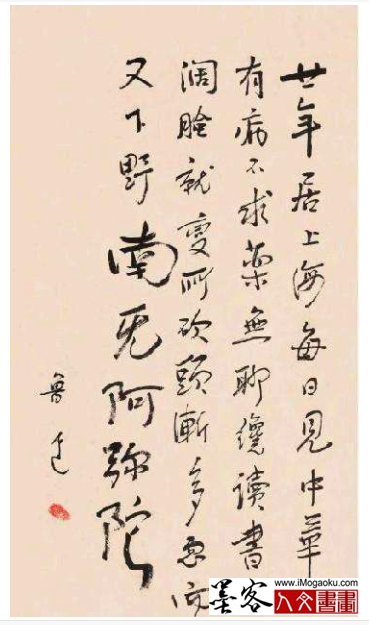 廿年居上海每日見中華
有病不求藥無聊纔讀書
濶臉就變所砍頭漸多忽而
又下野南无阿弥陀
魯迅
墨客
www.iMogaoku.com
人文書畫